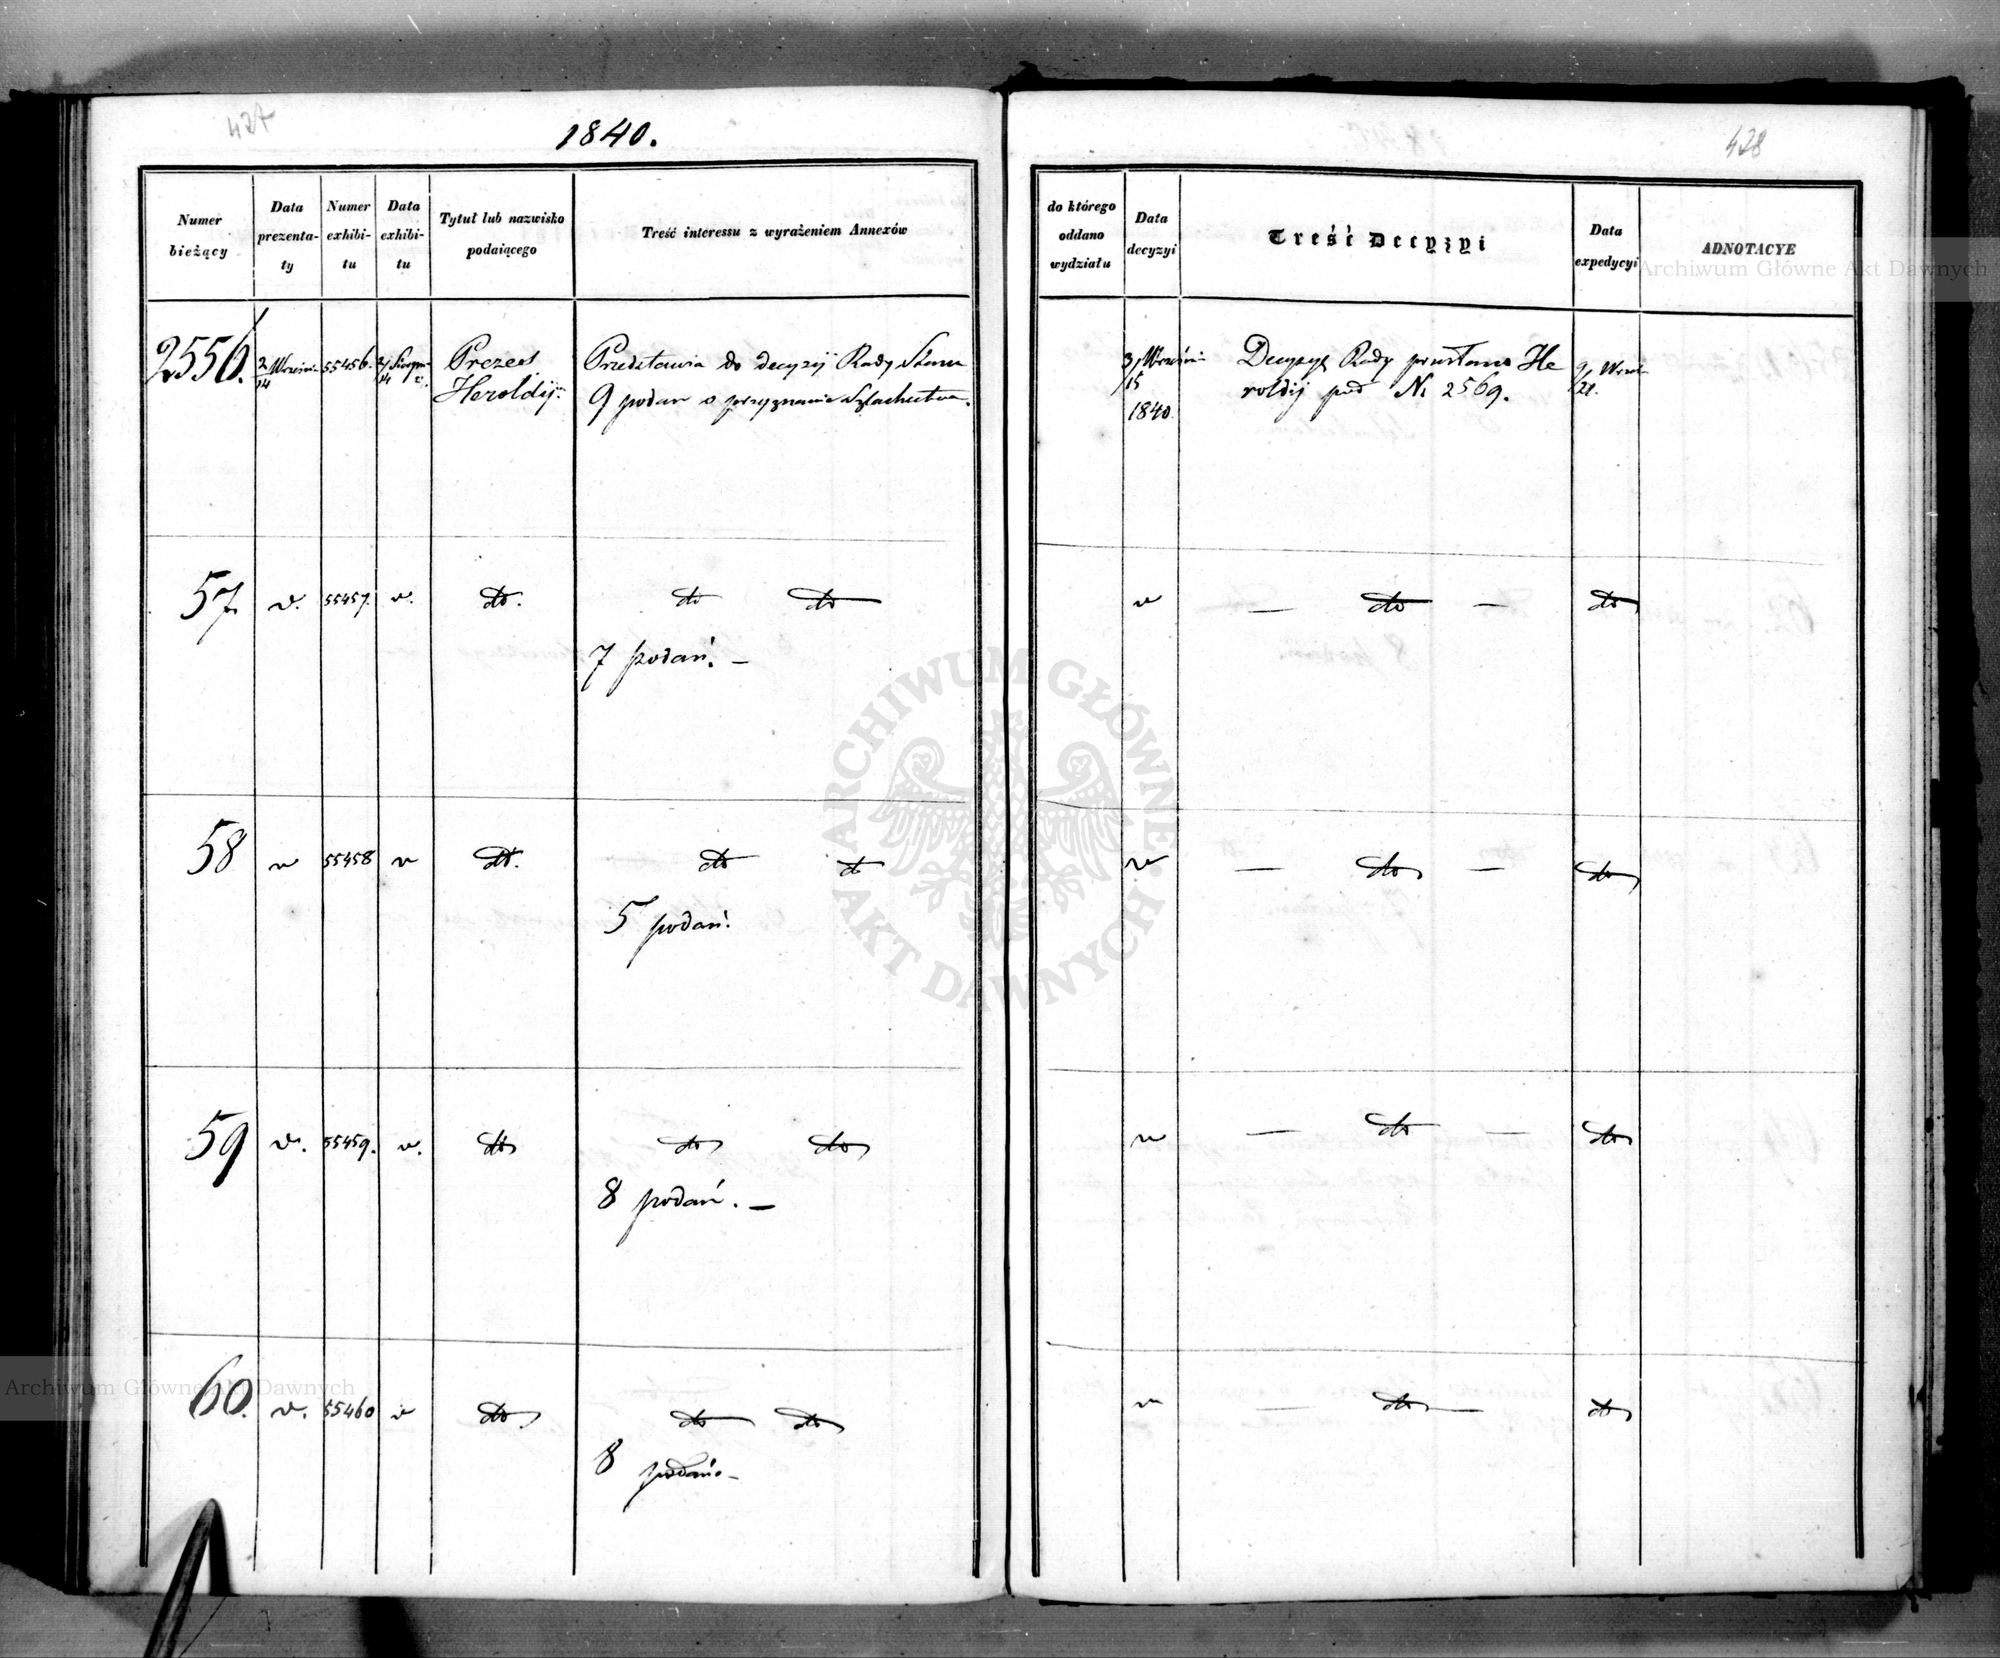 427
1840.
428
Numer
bieżący
Data
prezenta-
ty
Numer
exhibi-
tu
Data
exhibi-
tu
Tytuł lub nazwisko
podaiącego
Treść interessu z wyrażeniem Annexów
do którego
oddano
wydziału
Data
decyzyi
Treść Decyzyi
Data
expedycyi
ADNOTACYE
2556.
2/14 Wrześn
55456.
2/14
Prezes
Heroldyi
Przedstawia do decyzyi Rady Stanu
9 podań o przyznanie Szlachectwa.
3/15 Wrześni
1840.
Decyzyę Rady przesłano He
roldyi pod No 2569.
9/21. Wrześ
57.
v.
55457.
v.
do.
do do
7 podań. —
v
— do —
do
58
v
55458
v
do.
do do
5 podań.
v
— do —
do
59
v.
55459.
v.
do
do do
8 podań. —
v
— do —
do
60.
v.
55460
v
do.
do do
8 podań. —
v
— do —
do
Archiwum Główne Akt Dawnych
Archiwum Główne Akt Dawnych
ARCHIWUM GŁÓWNE
AKT DAWNYCH